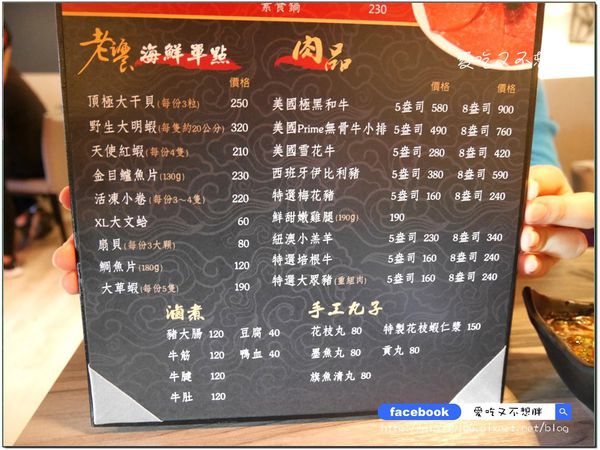 素食鍋 230
老饕 海鮮單點
價格
頂極大干貝(每份3粒) 250
野生大明蝦(每隻約20公分) 320
天使紅蝦(每份4隻) 210
金目鱸魚片(130g) 230
活凍小卷(每份3~4隻) 220
XL大文蛤 60
扇貝(每份3大顆) 80
鯛魚片(180g) 120
大草蝦(每份5隻) 190
肉品
價格 價格
美國極黑和牛 5盎司 580 8盎司 900
美國Prime無骨牛小排 5盎司 490 8盎司 760
美國雪花牛 5盎司 280 8盎司 420
西班牙伊比利豬 5盎司 380 8盎司 590
特選梅花豬 5盎司 160 8盎司 240
鮮甜嫩雞腿(190g) 190
紐澳小羔羊 5盎司 230 8盎司 340
特選培根牛 5盎司 160 8盎司 240
特選大眾豬(重組肉) 5盎司 160 8盎司 240
滷煮
豬大腸 120 豆腐 40
牛筋 120 鴨血 40
牛腱 120
牛肚 120
手工丸子
花枝丸 80 特製花枝蝦仁漿 150
墨魚丸 80 貢丸 80
旗魚清丸 80
愛吃又不想
facebook 愛吃又不想胖